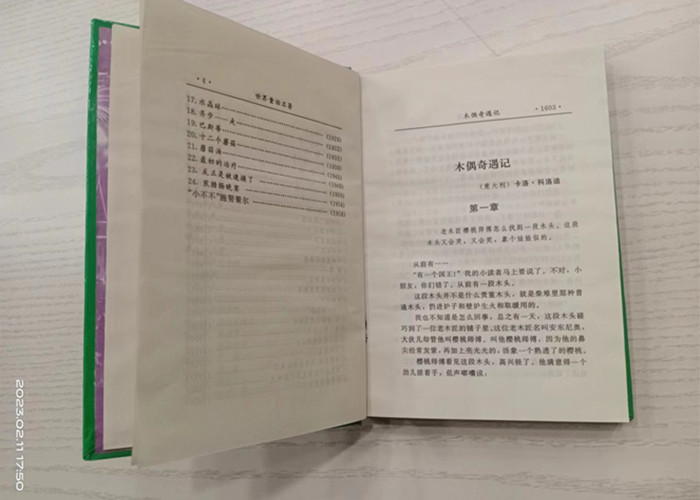 · 4 ·
世界童话名著
17. 水晶球
18. 齐步——走
19. 巴斯蒂
20. 十二个蘑菇
21. 蘑菇汤
22. 最初的治疗
23. 反正是被逮捕了
24. 煎腊肠晚宴
“小不不”施努豪尔
木偶奇遇记
· 1603 ·
木偶奇遇记
（意大利）卡洛·科洛迪
第一章
老木匠樱桃师傅怎么找到一段木头，这段
木头又会哭，又会笑，象个娃娃似的。
从前有——
“有一个国王！”我的小读者马上要说了。不对，小
朋友，你们错了。从前有一段木头。
这段木头并不是什么贵重木头，就是柴堆里那种普
通木头，扔进炉子和壁炉生火和取暖用的。
我也不知道是怎么回事，总之有一天，这段木头碰
巧到了一位老木匠的铺子里，这位老木匠名叫安东尼奥，
大伙儿却管他叫樱桃师傅。叫他樱桃师傅，因为他的鼻
尖经常发紫，再加上亮光光的，活象一个熟透了的樱桃。
樱桃师傅看见这段木头，高兴极了。他满意得一个
劲儿搓着手，低声嘟囔说：
2023.02.11 17:50